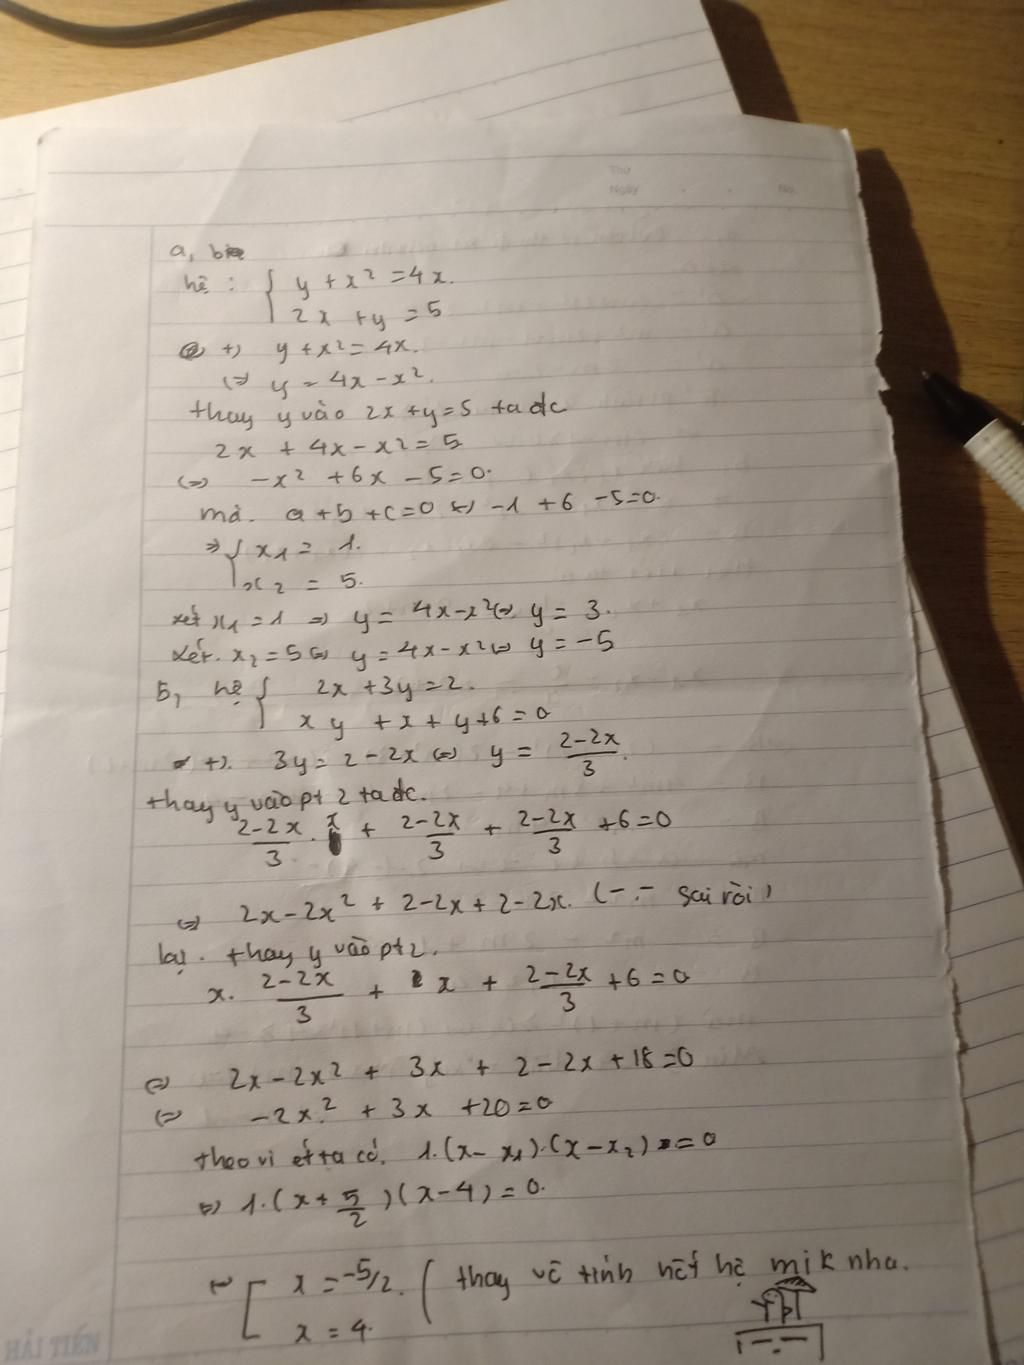 Thứ
Ngày No.
a,
hệ : { y + x² = 4x.
2x + y = 5
+) y + x² = 4x.
(=) y = 4x - x².
thay y vào 2x + y = 5 ta dc
2x + 4x - x² = 5
(=) -x² + 6x - 5 = 0.
mà. a + b + c = 0 (=) -1 + 6 - 5 = 0.
=> { x₁ = 1.
x₂ = 5.
xét x₁ = 1 => y = 4x - x² (=) y = 3.
xét. x₂ = 5 (=) y = 4x - x² (=) y = -5
b, hệ { 2x + 3y = 2.
xy + x + y + 6 = 0
+). 3y = 2 - 2x (=) y = (2-2x)/3.
thay y vào pt 2 ta dc.
(2-2x)/3 . x + (2-2x)/3 + (2-2x)/3 + 6 = 0
(=) 2x - 2x² + 2 - 2x + 2 - 2x. (-.- sai rồi)
lại. thay y vào pt2.
x. (2-2x)/3 + x + (2-2x)/3 + 6 = 0
(=) 2x - 2x² + 3x + 2 - 2x + 18 = 0
(=) -2x² + 3x + 20 = 0
theo vi ét ta có. 1.(x - x₁).(x - x₂) = 0
(=) 1.(x + 5/2)(x - 4) = 0.
[ x = -5/2. ( thay về tính hết hệ mik nha.
x = 4.
HẢI TIẾN